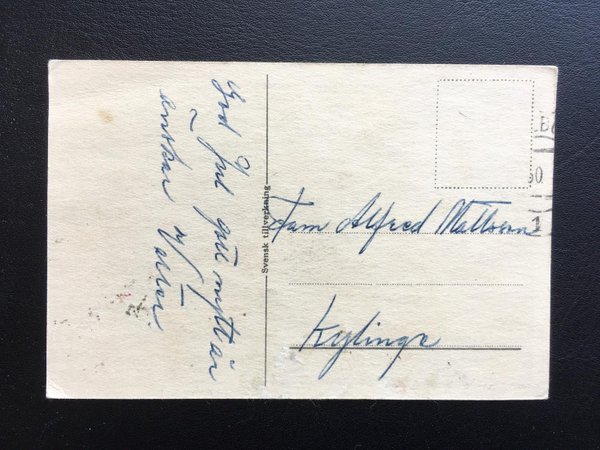 God Jul
gott nytt år
önskar
Svensk tillverkning
Fam Alfred Mattsson
Kylinge